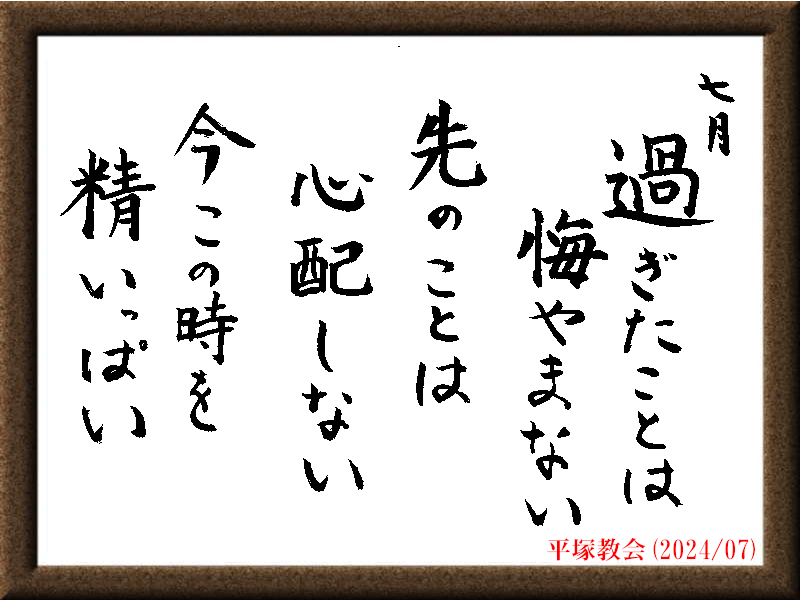 七月
過ぎたことは
悔やまない
先のことは
心配しない
今この時を
精いっぱい
平塚教会(2024/07)